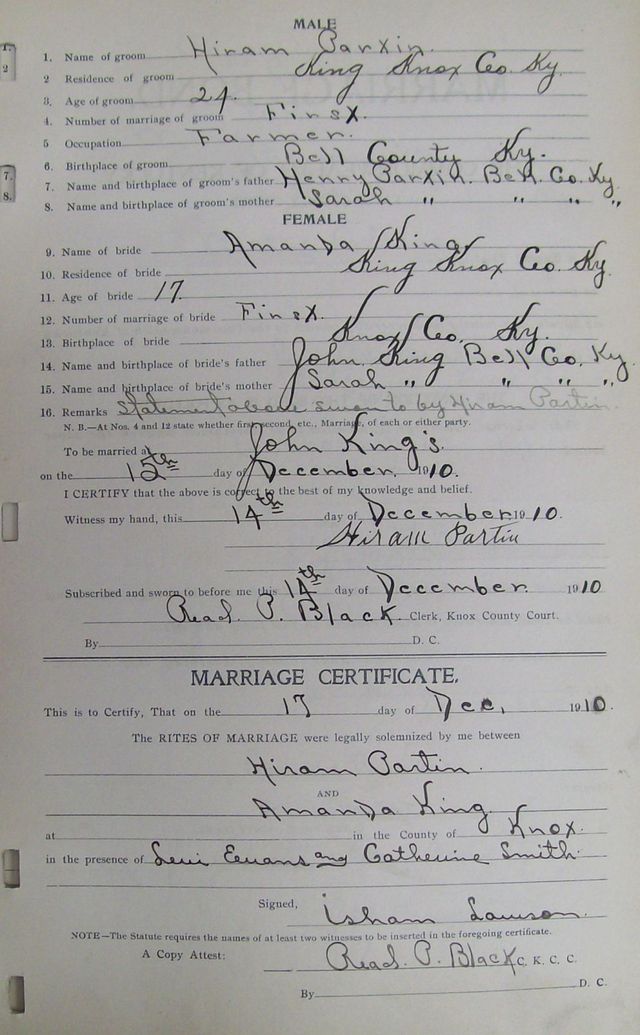 MALE
1. Name of groom Hiram Partin.
2 Residence of groom King Knox Co. Ky.
3. Age of groom 24.
4. Number of marriage of groom First.
5 Occupation Farmer.
6. Birthplace of groom Bell County Ky.
7. Name and birthplace of groom's father Henry Partin. Bell. Co. Ky.
8. Name and birthplace of groom's mother Sarah " " " "
7.
8.
1.
2
FEMALE
9. Name of bride Amanda King
10. Residence of bride King Knox Co. Ky.
11. Age of bride 17.
12. Number of marriage of bride First.
13. Birthplace of bride Knox Co. Ky.
14. Name and birthplace of bride's father John King Bell Co. Ky.
15. Name and birthplace of bride's mother Sarah " " " "
16. Remarks Statement above sworn to by Hiram Partin.
N. B.—At Nos. 4 and 12 state whether first, second, etc., Marriage, of each or either party.
To be married at John King's.
on the 15th day of December, 1910.
I CERTIFY that the above is correct to the best of my knowledge and belief.
Witness my hand, this 14th day of December 1910.
Hiram Partin
Subscribed and sworn to before me this 14th day of December. 1910
Read. P. Black Clerk, Knox County Court.
By D. C.
MARRIAGE CERTIFICATE.
This is to Certify, That on the 17 day of Dec, 1910.
The RITES OF MARRIAGE were legally solemnized by me between
Hiram Partin.
AND
Amanda King
at in the County of Knox.
in the presence of Levi Evans and Catherine Smith.
Signed, Isham Lawson
NOTE—The Statute requires the names of at least two witnesses to be inserted in the foregoing certificate.
A Copy Attest: Read. P. Black C. K. C. C.
By D. C.